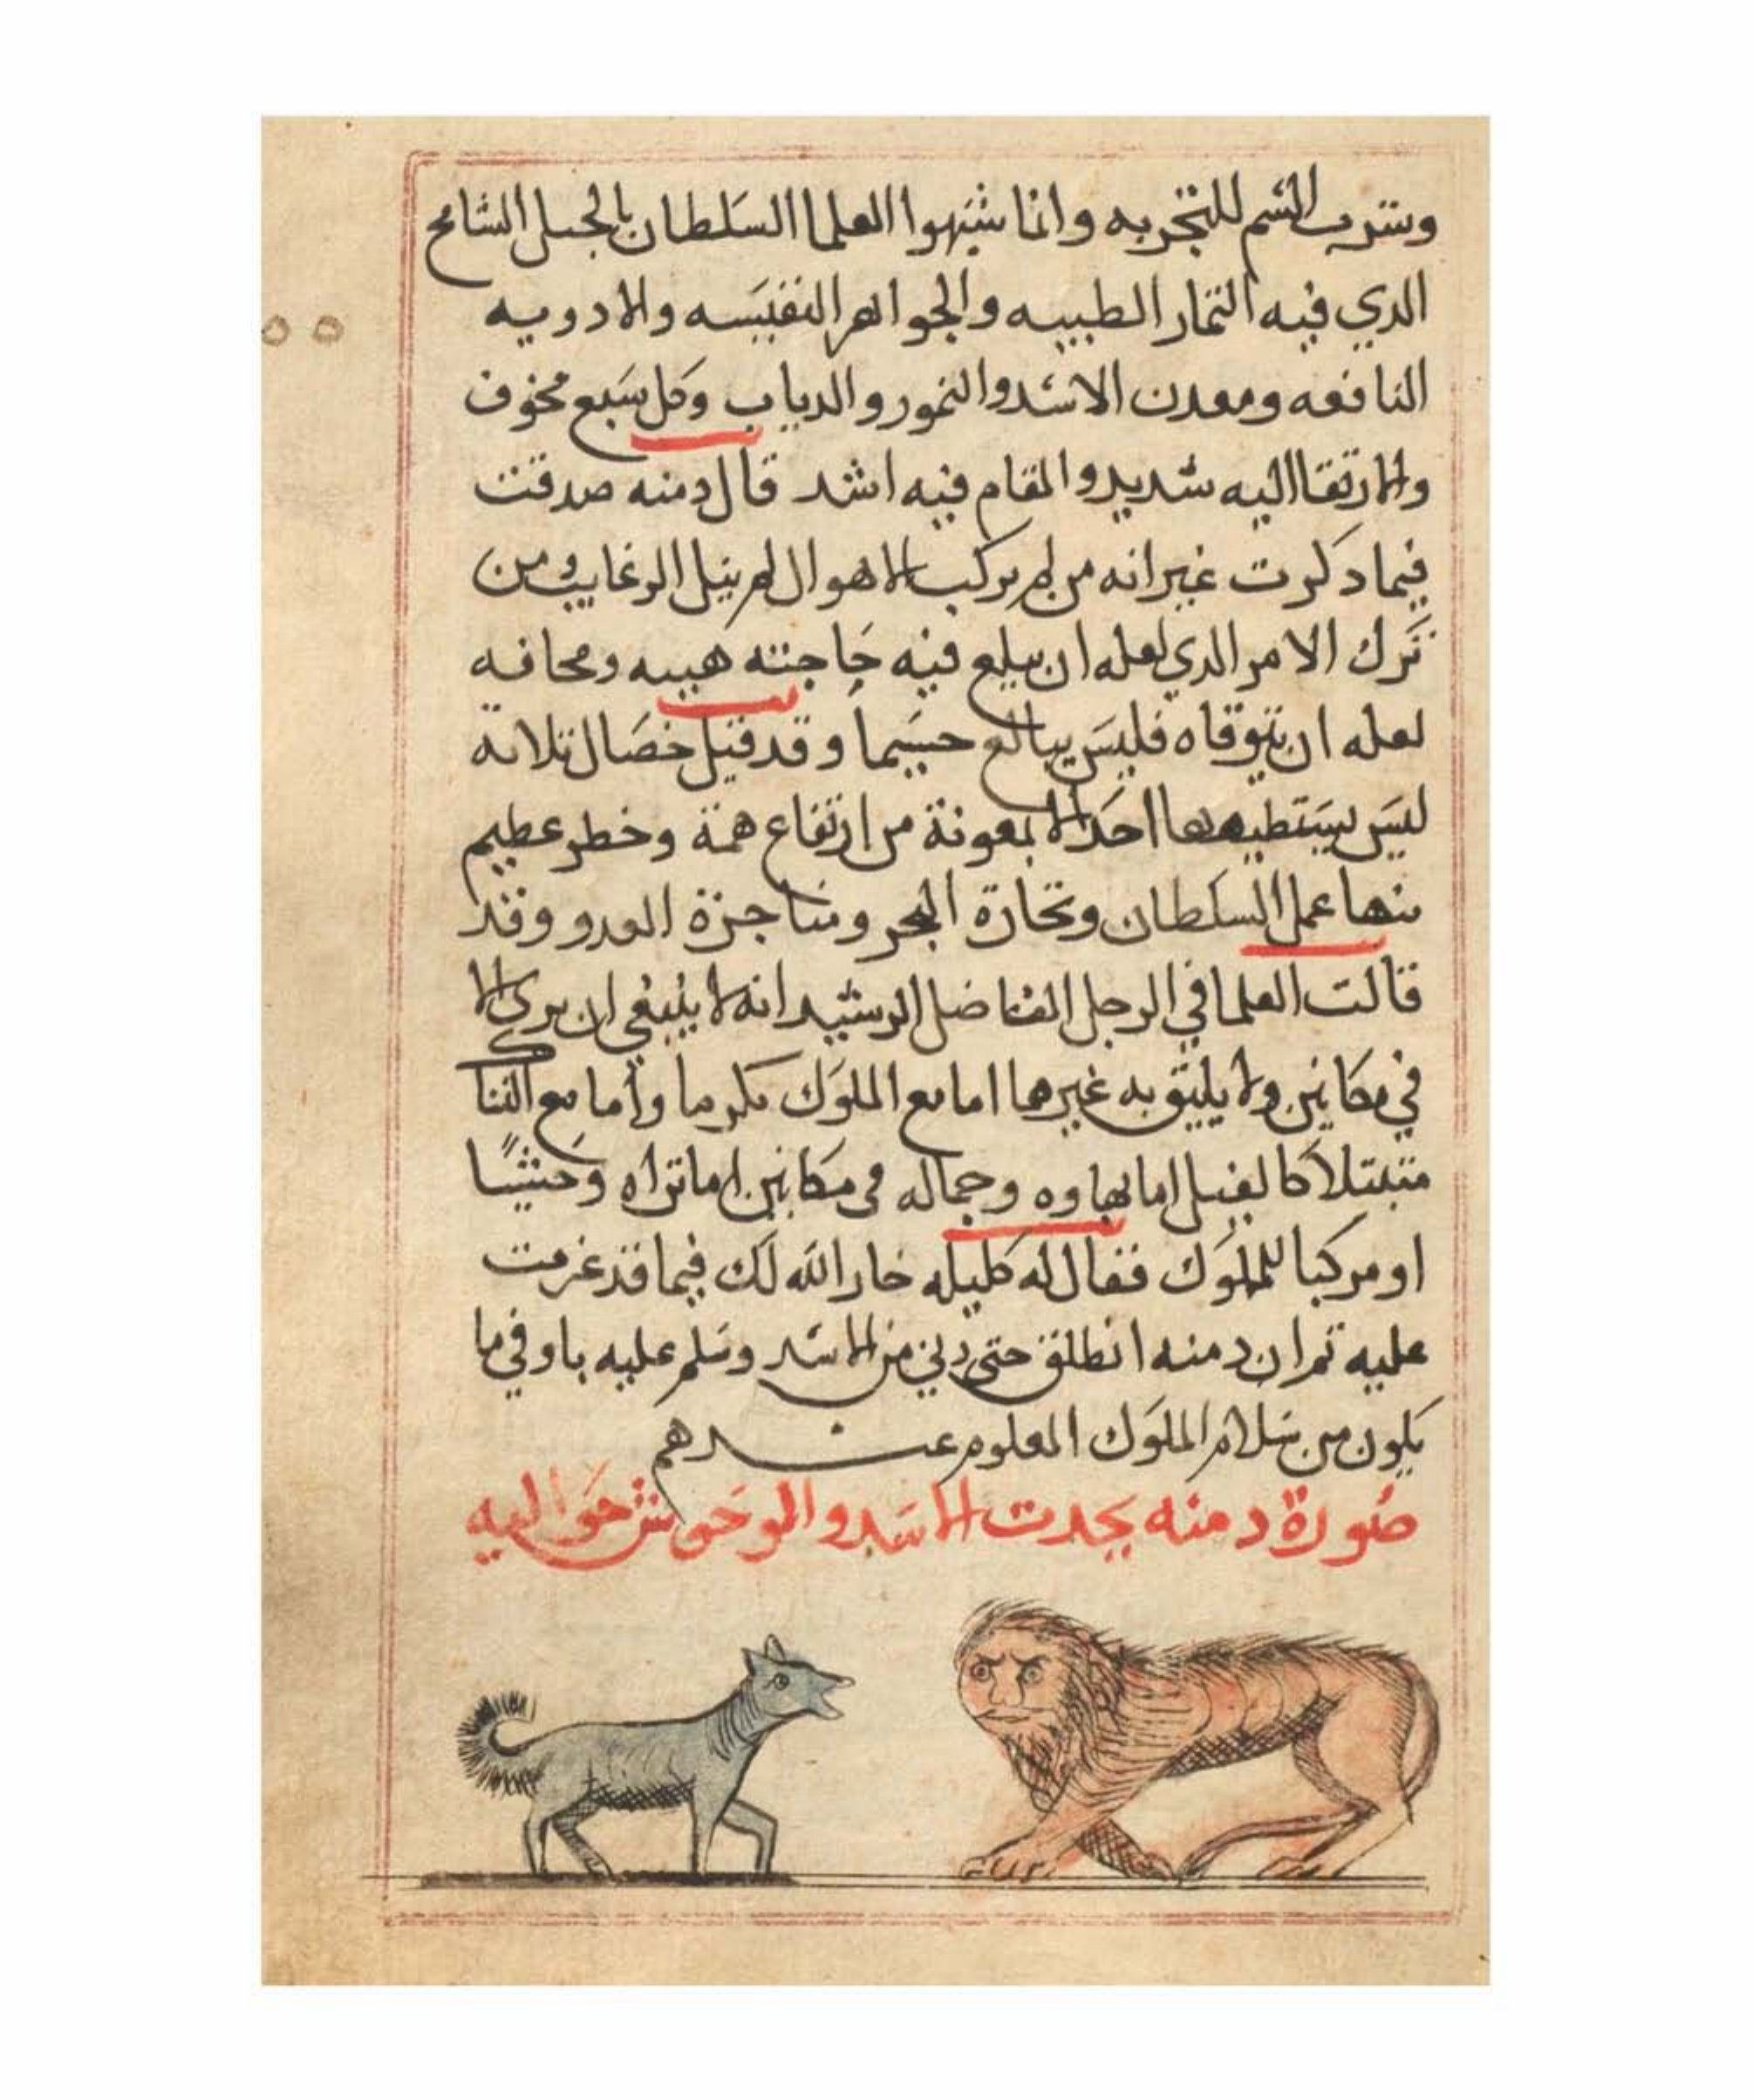 وشرب السم للتجربه وانما شبهوا العلما السلطان بالجبل الشامخ
الدي فيه الثمار الطيبه والجواهر النفيسه والادويه
النافعه ومعدن الاسد والنمور والدياب وكل سبع مخوف
والارتقا اليه شديد والمقام فيه اشد قال دمنه صدقت
فيما دكرت غير انه من لم يركب الاهوال لم ينيل الرغايب ومن
ترك الامر الدي لعله ان يبلع فيه حاجته هيبه ومخافه
لعله ان يتوقاه فليس ببالع جسيما وقد قيل خصال ثلاثه
ليس يستطيعها احد الا بمعونة من ارتفاع همة وخطر عظيم
منها عمل السلطان وتجارة البحر ومناجزة العدو وقد
قالت العلما في الرجل الفاضل الرشيد انه لا ينبغي ان يرى الا
في مكانين ولا يليق به غيرها اما مع الملوك مكرما واما مع النسا
متبتلا كالفيل اما بهاوه وجماله في مكانين اما تراه وحشيا
او مركبا للملوك فقال له كليله خار الله لك فيما قد عزمت
عليه تم ان دمنه انطلق حتى دني من الاسد وسلم عليه باوفي ما
يكون من سلام الملوك المعلوم عندهم
صورة دمنه يحدت الاسد والوحوش حواليه